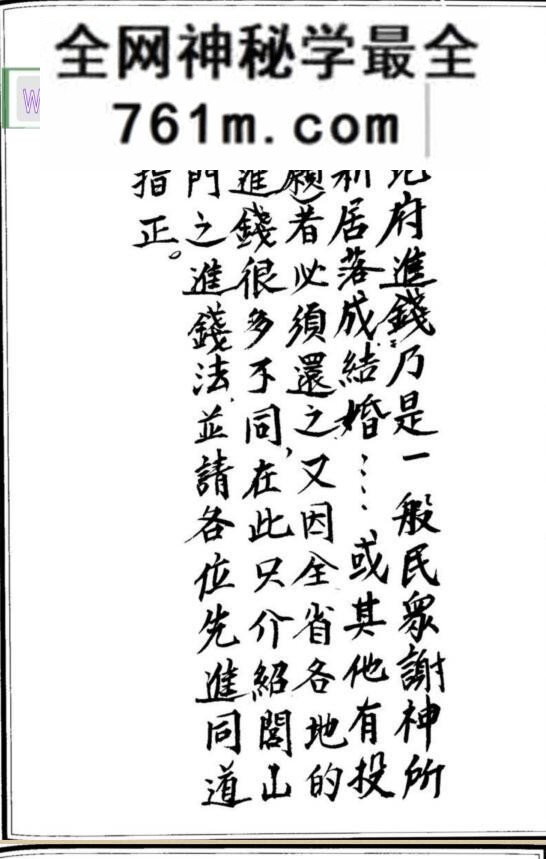 全网神秘学最全
761m.com
W
府進錢乃是一般民衆謝神所
新居落成結婚……或其他有投
願者必須還之又因全省各地的
進錢很多不同,在此只介紹閭山
門之進錢法,並請各位先進同道
指正。